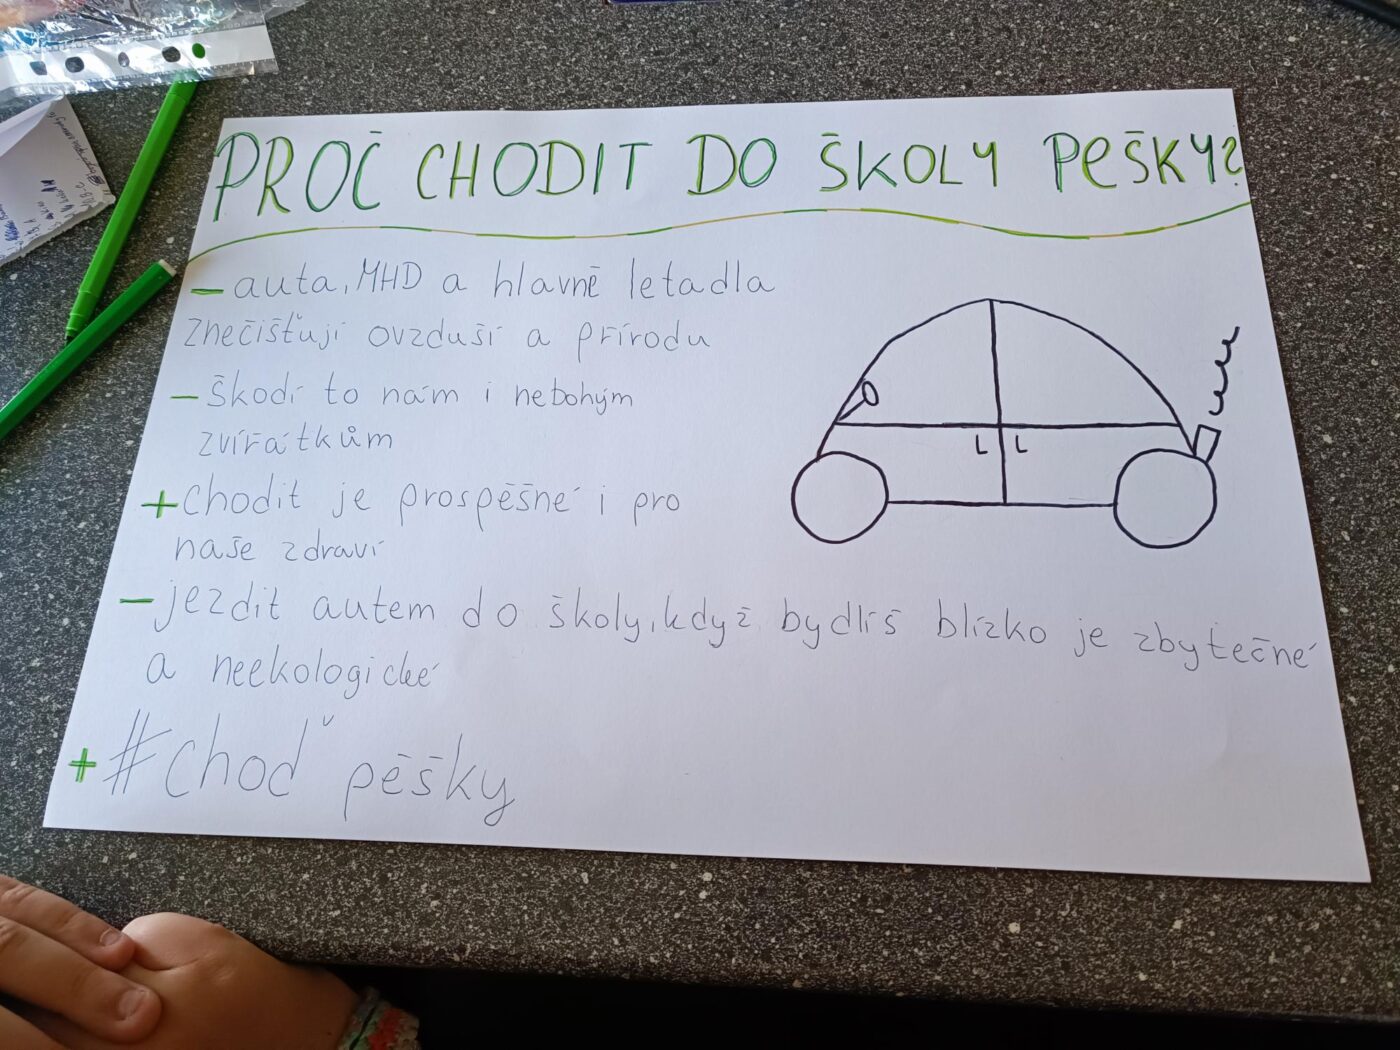 PROČ CHODIT DO ŠKOLY PEŠKY?
- auta, MHD a hlavně letadla
znečišťují ovzduší a přírodu
- škodí to nám i nebohým
zvířátkům
+ chodit je prospěšné i pro
naše zdraví
- jezdit autem do školy, když bydlíš blízko je zbytečné
a neekologické
+ #choď pěšky